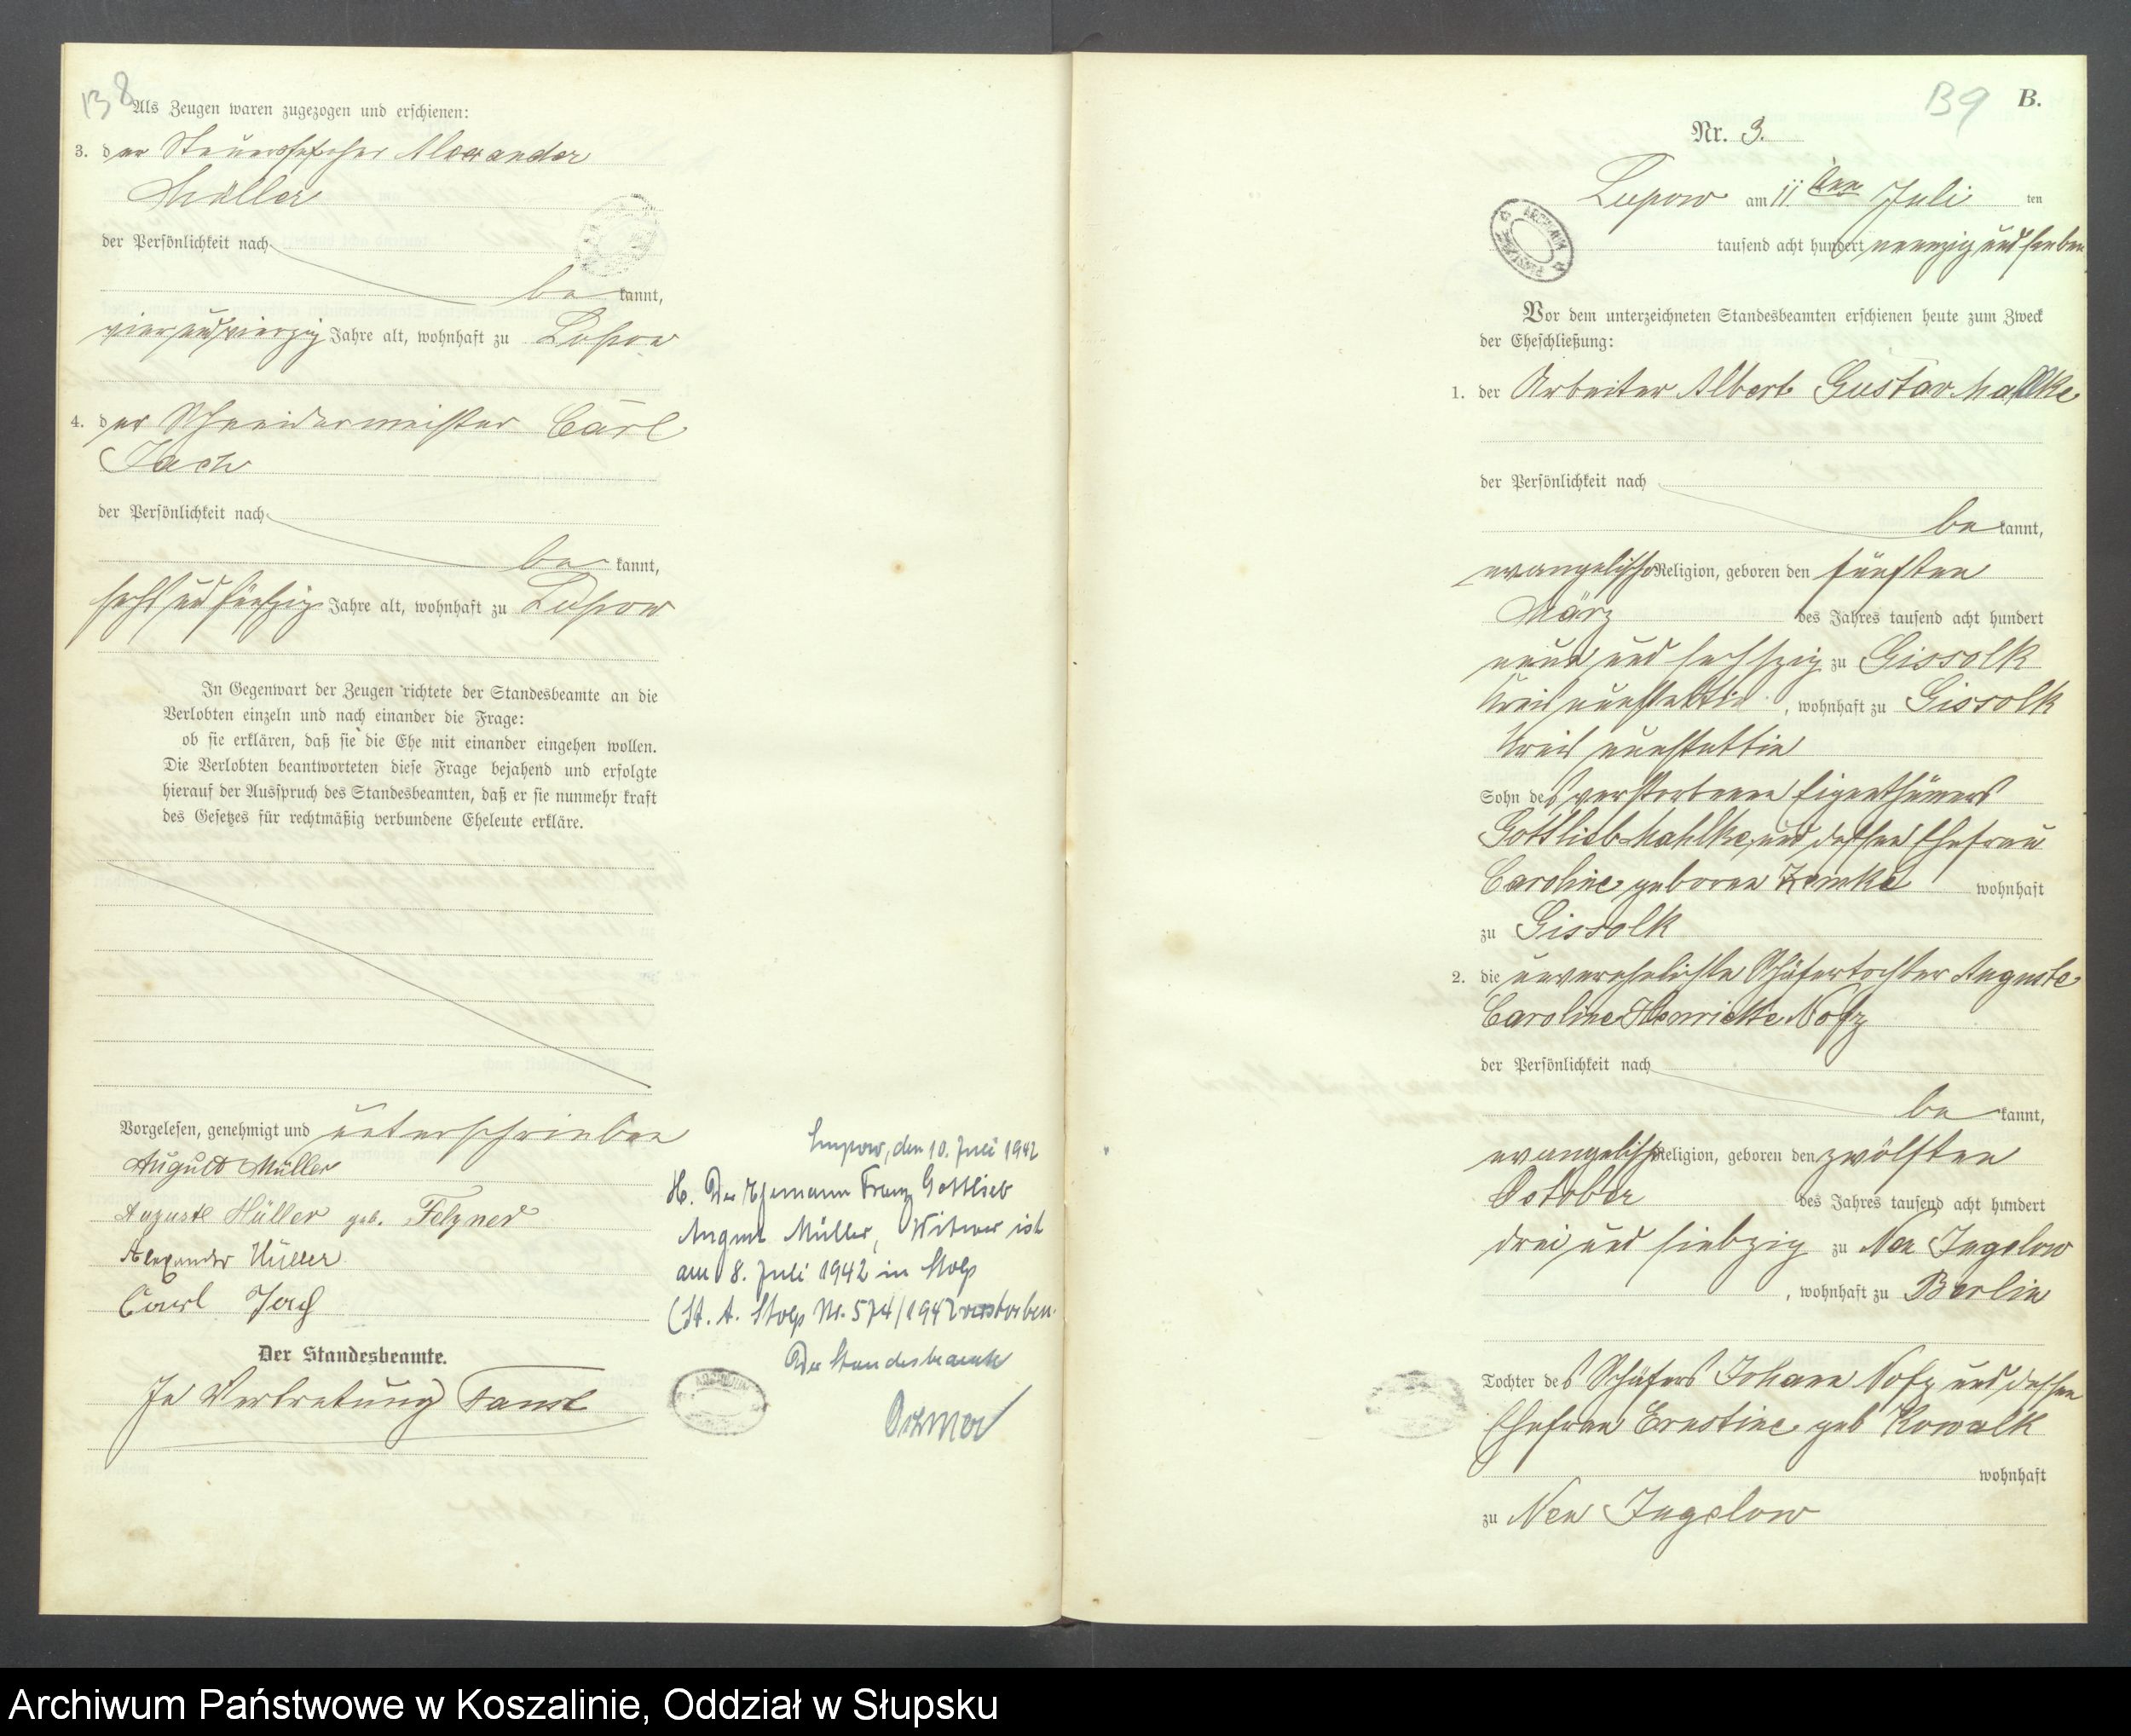 138
Als Zeugen waren zugezogen und erschienen:
3. der Alexander
Müller
der Persönlichkeit nach
be kannt,
vier und vierzig Jahre alt, wohnhaft zu Lupow
4. der Schneidermeister Carl
Jach
der Persönlichkeit nach
be kannt,
sechs und fünfzig Jahre alt, wohnhaft zu Lupow
In Gegenwart der Zeugen richtete der Standesbeamte an die
Verlobten einzeln und nach einander die Frage:
ob sie erklären, daß sie die Ehe mit einander eingehen wollen.
Die Verlobten beantworteten diese Frage bejahend und erfolgte
hierauf der Ausspruch des Standesbeamten, daß er sie nunmehr kraft
des Gesetzes für rechtmäßig verbundene Eheleute erkläre.
Vorgelesen, genehmigt und unterschrieben
August Müller
Auguste Müller geb. Felzner
Alexander Müller
Carl Jach
Der Standesbeamte.
In Vertretung Faust
Lupow, den 10. Juli 1942
H. Der Ehemann Franz Gottlieb
August Müller, Witwer ist
am 8. Juli 1942 in Stolp
(St. A. Stolp Nr. 574/1942 verstorben.
Der Standesbeamte
139
B.
Nr. 3.
Lupow am 11 ten Juli ten
tausend acht hundert neunzig und sieben
Vor dem unterzeichneten Standesbeamten erschienen heute zum Zweck
der Eheschließung:
1. der Arbeiter Albert Gustav Mahlke
der Persönlichkeit nach
be kannt,
evangelischer Religion, geboren den fünften
März des Jahres tausend acht hundert
neun und sechszig zu Gissolk
Kreis neustettin, wohnhaft zu Gissolk
Kreis neustettin
Sohn des verstorbenen Eigenthümers
Gottlieb Mahlke und dessen Ehefrau
Caroline geborene Zemke wohnhaft
zu Gissolk
2. die unverehelichte Schäfertochter Auguste
Caroline Henriette Nofz
der Persönlichkeit nach
be kannt,
evangelischer Religion, geboren den zwölften
October des Jahres tausend acht hundert
drei und siebzig zu Neu Jugelow
, wohnhaft zu Berlin
Tochter des Schäfers Johann Nofz und dessen
Ehefrau Ernstine geb Kowalk
wohnhaft
zu Neu Jugelow
Archiwum Państwowe w Koszalinie, Oddział w Słupsku